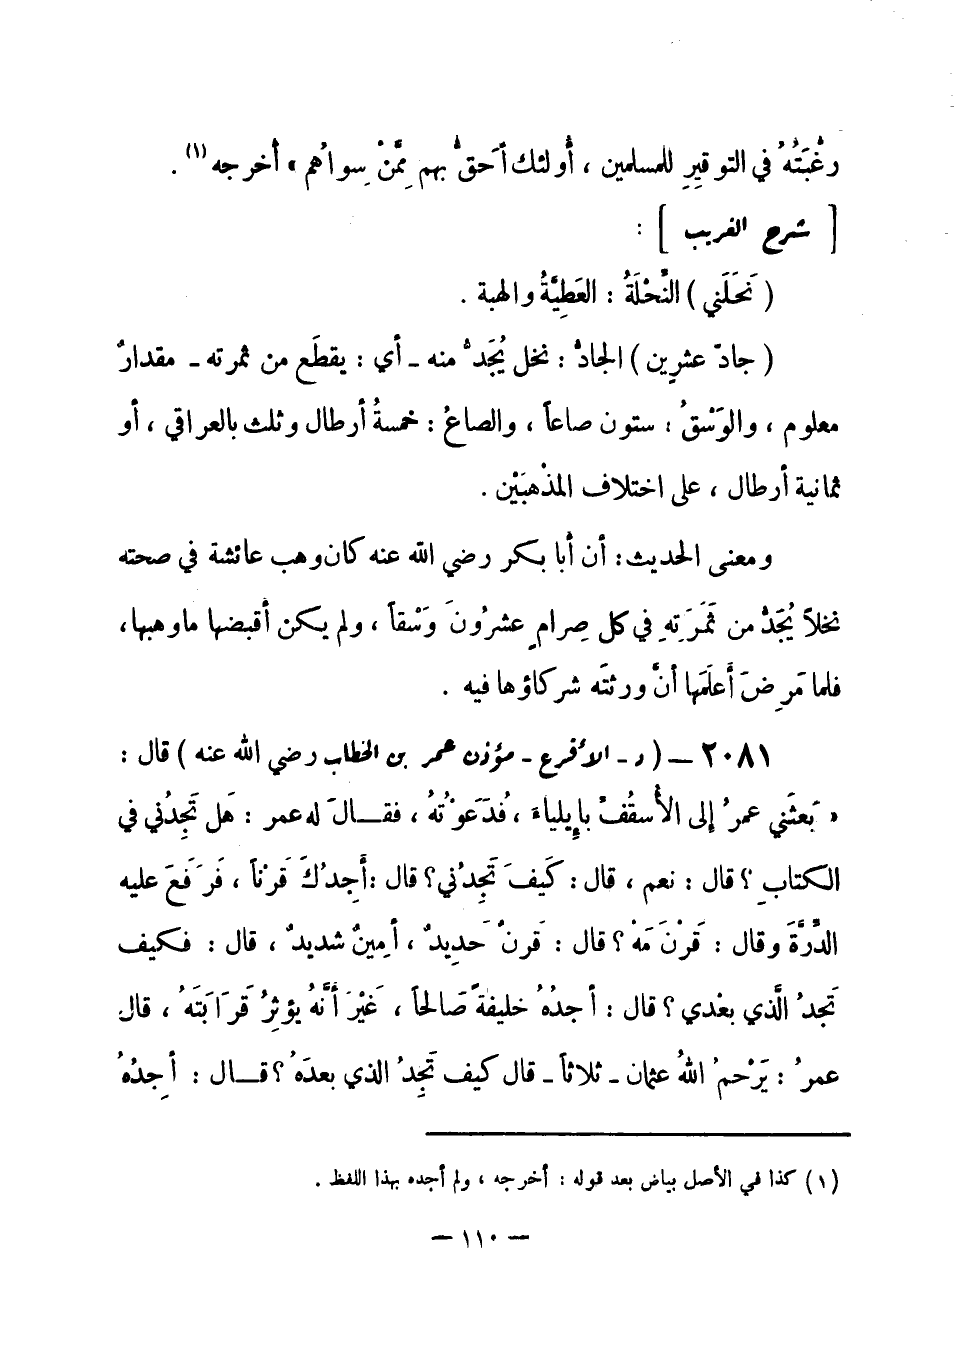 رغْبَتُهُ في التوقيرِ للمسلمين ، أُولئك أَحَقُّ بهم مِمَّنْ سِواهُم » أخرجه (١) .
[ شرح الغريب ] :
( نَحَلَني ) النِّحْلَةُ : العَطِيَّةُ والهبة .
( جادّ عشرين ) الجادُّ : نخل يُجَدُّ منه ـ أي : يقطَع من ثمرته ـ مقدارٌ
معلوم ، والوَسْقُ : ستون صاعاً ، والصاعُ : خمسةُ أرطال وثلث بالعراقي ، أو
ثمانية أرطال ، على اختلاف المذْهبَيْن .
ومعنى الحديث : أن أبا بكر رضي الله عنه كان وهب عائشة في صحته
نخلاً يُجَدُّ من ثَمَرَتِهِ في كل صِرامٍ عشرُونَ وَسْقاً ، ولم يكن أقبضها ما وهبها ،
فلما مَرِضَ أَعلَمَها أنَّ ورثتَه شركاؤها فيه .
٢٠٨١ – ( د ـ الأقرع ـ مؤذن عمر بن الخطاب رضي الله عنه ) قال :
« بَعثَني عمرُ إلى الأُسقُفِّ بإيلياءَ ، فدَعَوْتُهُ ، فقال له عمر : هَل تَجِدُني في
الكتابِ ؟ قال : نعم ، قال : كَيفَ تَجِدُني ؟ قال : أَجِدُكَ قَرْناً ، فَرَفَعَ عليه
الدِّرَّةَ وقال : قَرْنَ مَهْ ؟ قال : قَرنٌ حَدِيدٌ ، أمِينٌ شديدٌ ، قال : فكيف
تَجدُ الَّذي بعْدي ؟ قال : أجدُهُ خليفةً صَالحاً ، غَيْرَ أنَّهُ يؤثِرُ قَرَابَتَهُ ، قال
عمرُ : يَرْحمُ اللهُ عثمان ـ ثلاثاً ـ قال كيف تَجِدُ الذي بعدَهُ ؟ قال : أجِدُهُ
(١) كذا في الأصل بياض بعد قوله : أخرجه ، ولم أجده بهذا اللفظ .
– ١١٠ –